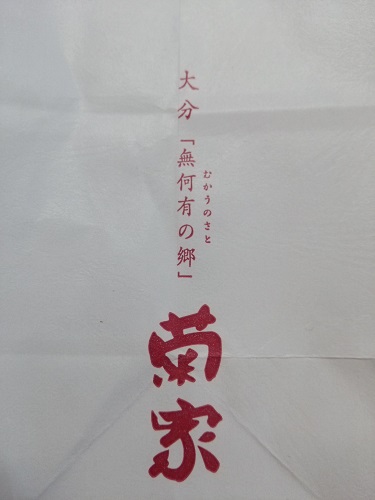 大分「無何有の郷」
むかうのさと
菊家